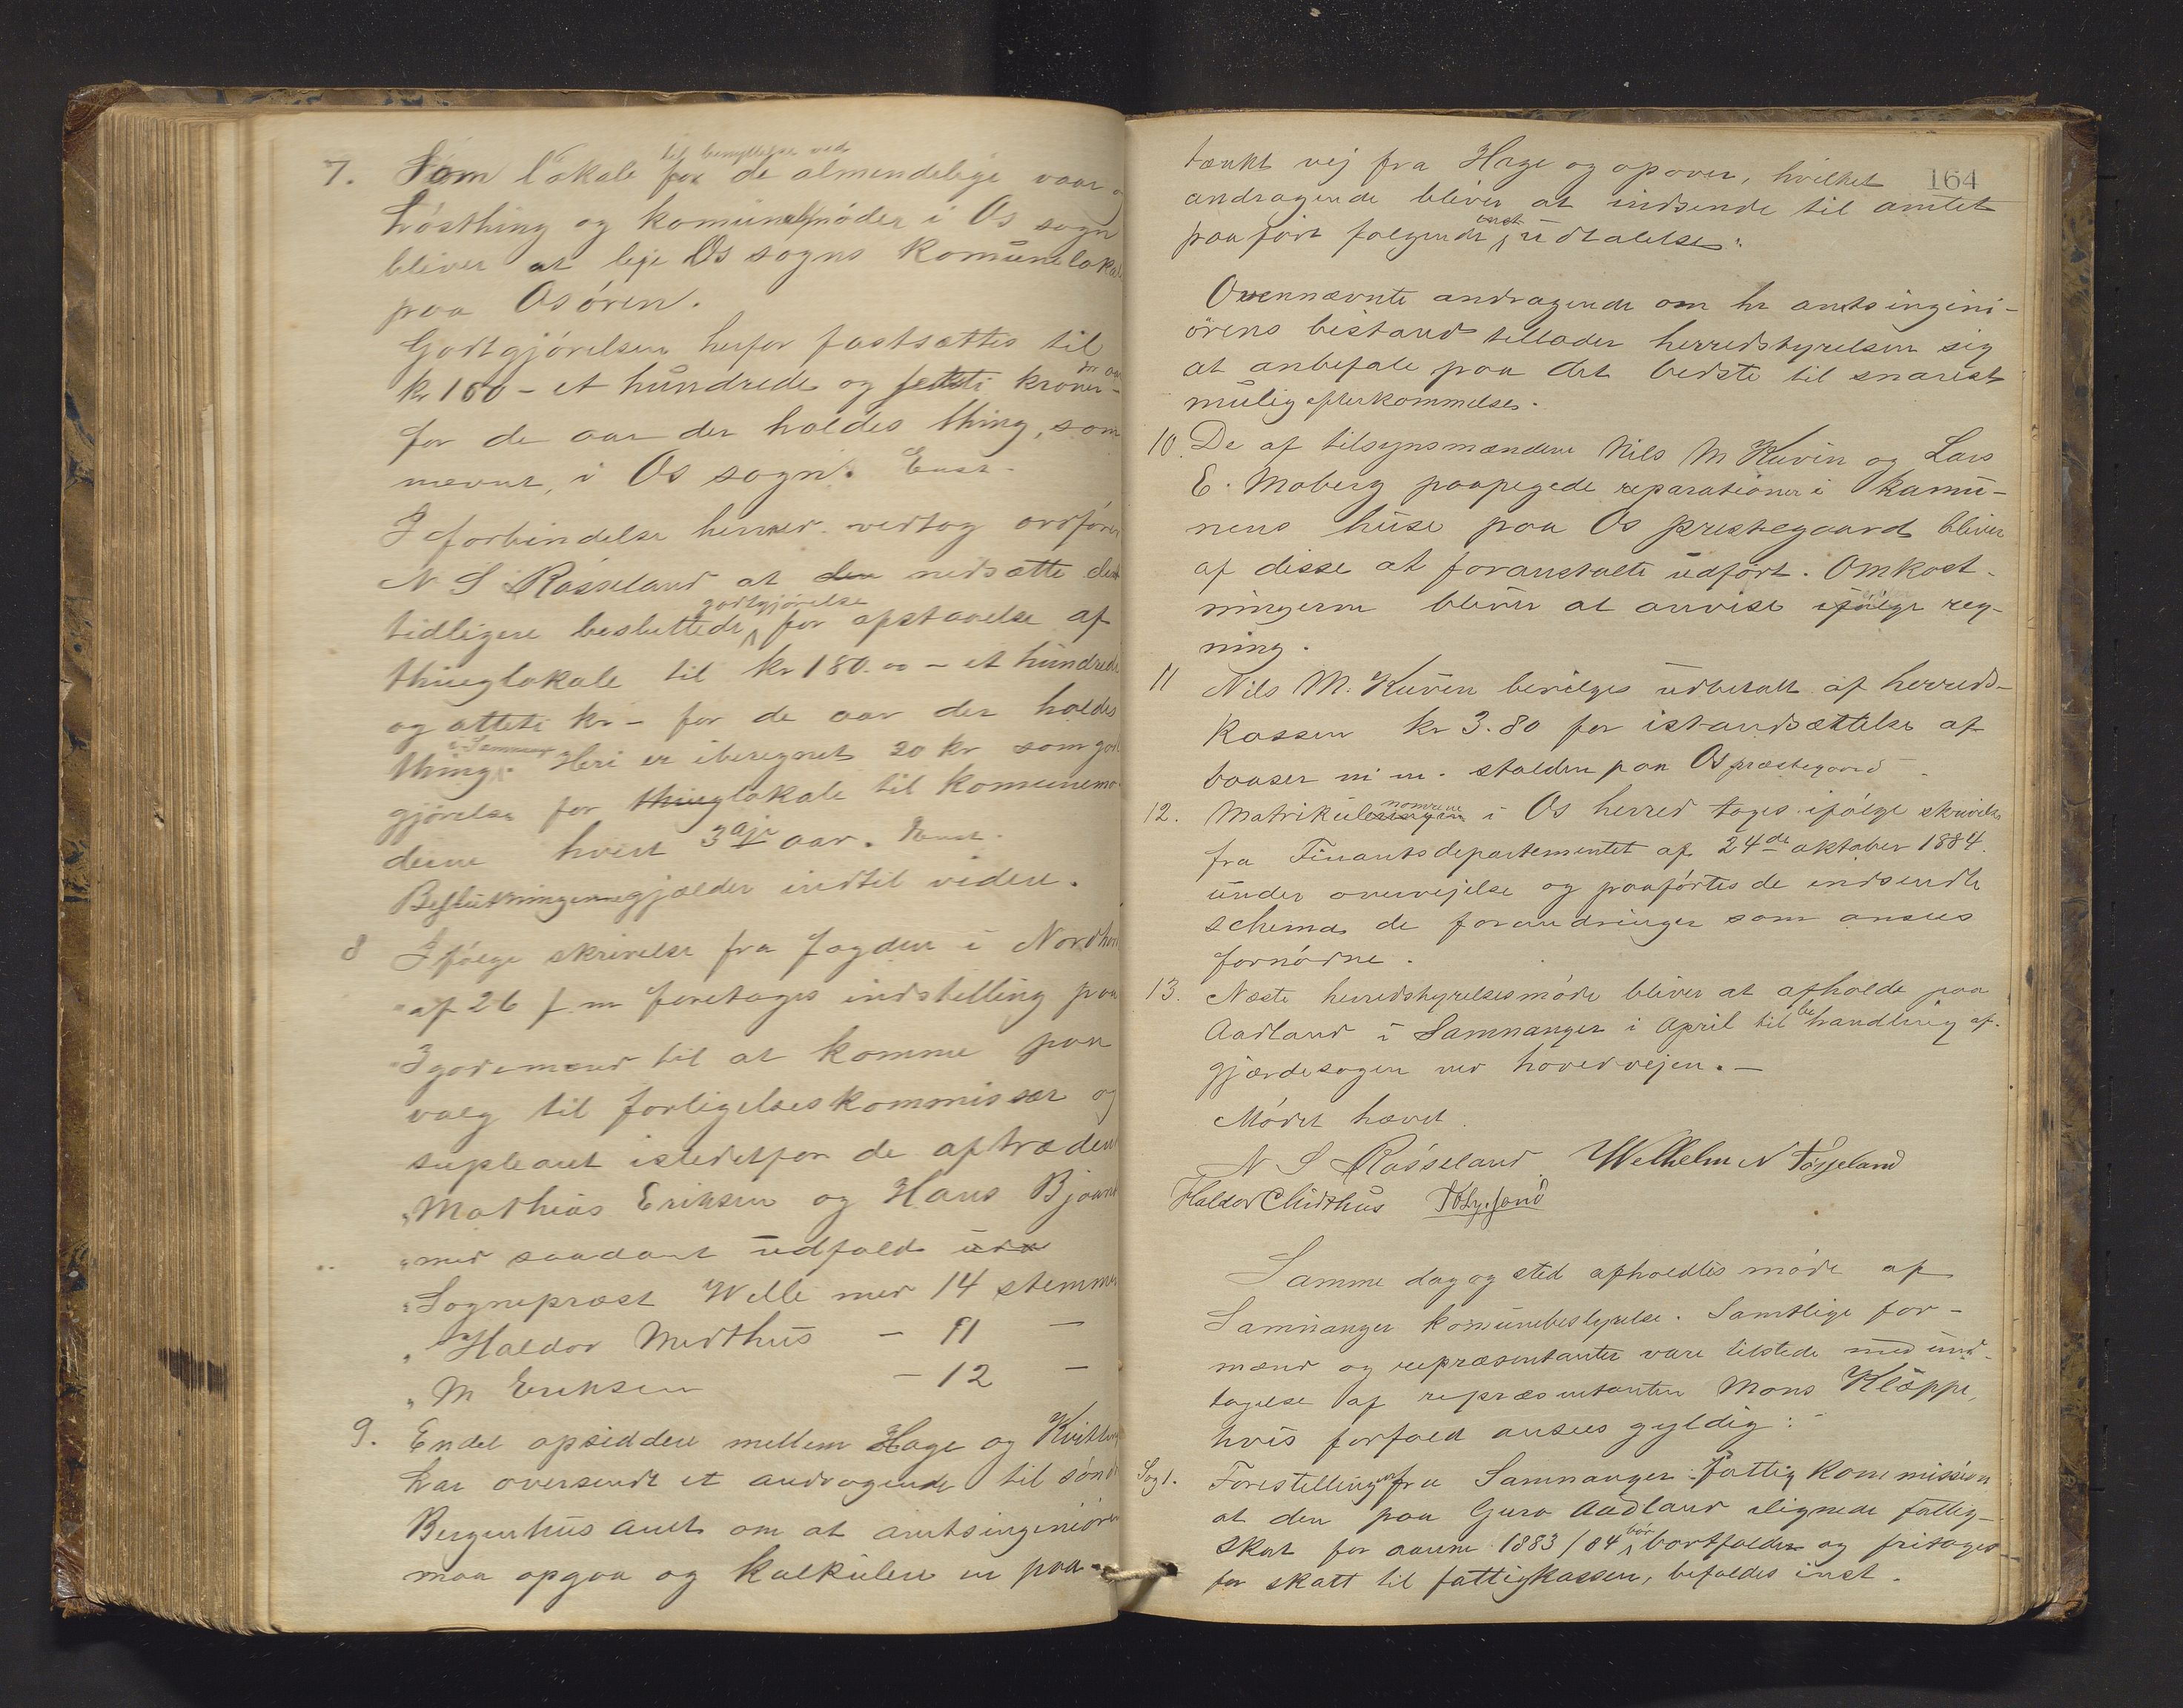 7. Som lokale for til benyttelse ved de almendelige vaar og
hösthing og komunemöder i Os sogn
bliver at leje Os sogns Komunelokale
paa Osören.
Godtgjörelsen herfor fastsættes til
kr 160 - et hundrede og seksti kroner - pr aar
for de aar der holdes thing, som
nævnt, i Os sogn. Enst.
I forbindelse hermed vedtog ordförer
N S Rösseland at den nedsætte den
tidligere besluttede godtgjörelse for opstavelse af
thinglokale til kr 180.00 - et hundrede
og otteti kr - for de aar der holdes
thing i Samnanger. Heri er iberegnet 20 kr som godt
gjörelse for thinglokale til komunemö
derne hvert 3dje aar. Enst.
Beslutningerne gjælder indtil videre.
8 Ifölge skrivelse fra fogden i Nordhor
af 26 f m foretages indstilling paa
3 godemænd til at komme paa
valg til forligelseskommissær og
supleant istedetfor de aftræden
Mathias Eriksen og Hans Bjaane
med saadant udfald
Sognepræst Welle med 14 stemmer
" Haldor Midthus - 11 -
" M Eriksen - 12 -
9. Endel opsiddere mellem Hage og Kvitt
har oversendt et andragende til söndre
Bergenhus amt om at amtsingeniören
maa opgaa og kalkulere en paa-
164
tænkt vej fra Hage og opover, hvilket
andragende bliver at indsende til amtet
paafört fölgende enst udtalelse:
Ovennævnte andragende om hr amtsingeni-
örens bistand tillader herredstyrelsen sig
at anbefale paa det bedste til snarest
mulig efterkommelse.
10. De af tilsynsmændene Nils M Kuven og Lars
E. Moberg paapegede reparationer i Kamu-
nens huse paa Os prestegaard bliver
af disse at foranstalte udfört. Omkost-
ningerne bliver at anvise ifölge reg-
ning.
11 Nils M. Kuven bevilges udbetalt af herreds-
kassen kr 3.80 for istandsættelse af
baaser m m. stalden paa Os præstegaard.
12. Matrikulnomrene i Os herred toges ifölge skrivelse
fra Finantsdepartementet af 24de oktober 1884.
under overvejelse og paaförtes de indsendte
schema de forandringer som ansees
fornödne.
13. Næste herredstyrelsesmöde bliver at afholde paa
Aadland i Samnanger i April til behandling af
gjærdesagen ved hovedvejen. -
Mödet hævet.
N S Rösseland Welhelm N Tösseland
Haldor C Midthus
Samme dag og sted afholdtes möde af
Samnanger komunebestyrelse. Samtlige for-
mænd og repræsentanter vare tilstede med und-
tagelse af repræsentanten Mons Kläppe,
hvis forfald ansees gyldig:
Sag 1. Forestilling om fra Samnanger Fattigkommission
at den paa Guro Aadland ilignede fattig-
skat for aarene 1883/84 bör bortfalder og fritages
for skatt til fattigkassen, bifaldes enst.